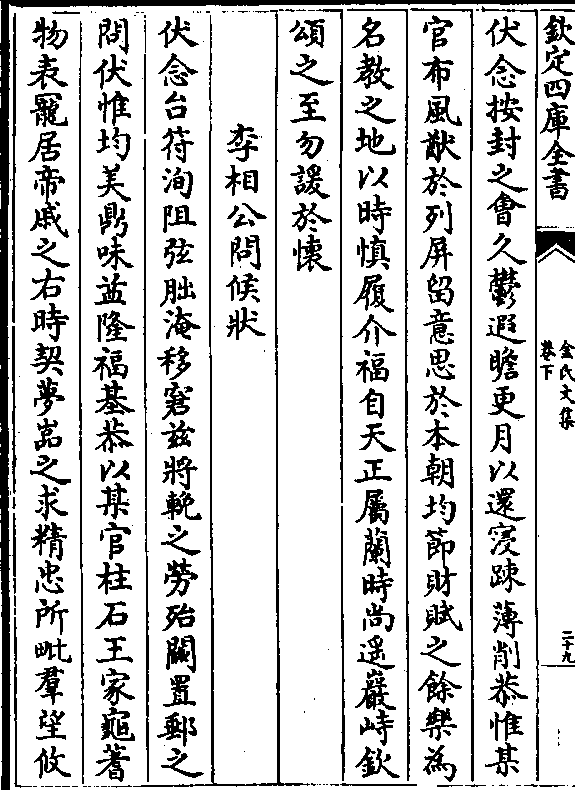 欽定四庫全書
金氏文集
卷下
二十九
伏念按封之會久鬱遐瞻更月以還寖踈薄削恭惟某
官布風猷於列屏留意思於本朝均節財賦之餘樂為
名教之地以時慎履介福自天正屬蘭時尚遥巖峙欽
頌之至勿諼於懷
李相公問候狀
伏念台符洵阻弦朏淹移窘兹將輓之勞殆闕置郵之
問伏惟均美鼎味益隆福基恭以某官柱石王家龜蓍
物表寵居帝戚之右時契夢嵓之求精忠所毗羣望攸